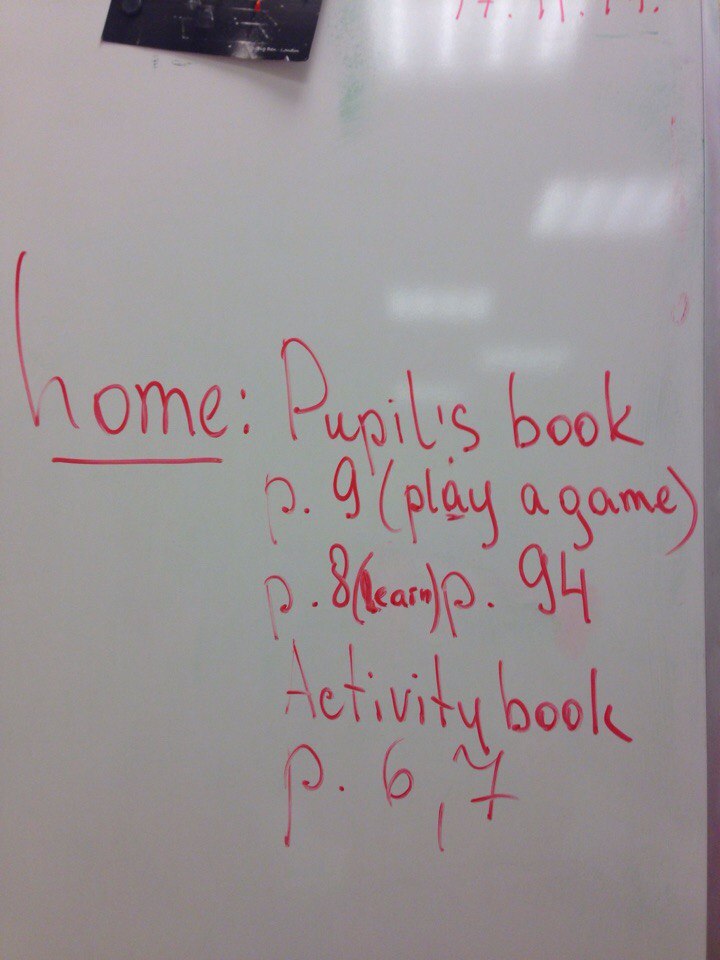 home: Pupil's book
p. 9 (play a game)
p. 8 (learn) p. 94
Activity book
p. 6, 7